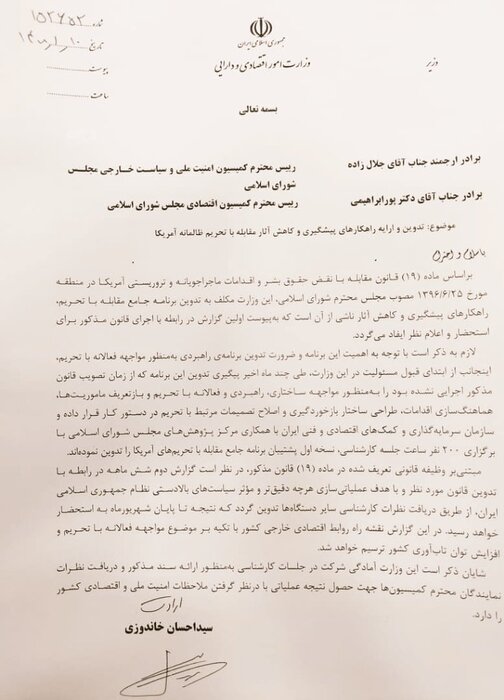 شماره ۱۵۲۶۵۲
تاریخ
پیوست
ساعت
جمهوری اسلامی ایران
وزارت امور اقتصادی و دارایی
وزیر
بسمه تعالی
برادر ارجمند جناب آقای جلال زاده
رییس محترم کمیسیون امنیت ملی و سیاست خارجی مجلس شورای اسلامی
برادر جناب آقای دکتر پورابراهیمی
رییس محترم کمیسیون اقتصادی مجلس شورای اسلامی
موضوع: تدوین و ارایه راهکارهای پیشگیری و کاهش آثار مقابله با تحریم ظالمانه آمریکا
با سلام و احترام
براساس ماده (۱۹) قانون مقابله با نقض حقوق بشر و اقدامات ماجراجویانه و تروریستی آمریکا در منطقه
مورخ ۱۳۹۶/۶/۲۵ مصوب مجلس محترم شورای اسلامی، این وزارت مکلف به تدوین برنامه جامع مقابله با تحریم،
راهکارهای پیشگیری و کاهش آثار ناشی از آن است که به‌پیوست اولین گزارش در رابطه با اجرای قانون مذکور برای
استحضار و اعلام نظر ایفاد می‌گردد.
لازم به ذکر است با توجه به اهمیت این برنامه و ضرورت تدوین برنامه‌ی راهبردی به‌منظور مواجهه فعالانه با تحریم،
اینجانب از ابتدای قبول مسئولیت در این وزارت، طی چند ماه اخیر پیگیری تدوین این برنامه که از زمان تصویب قانون
مذکور اجرایی نشده بود را به‌منظور مواجهه ساختاری، راهبردی و فعالانه با تحریم و بازتعریف ماموریت‌ها،
هماهنگ‌سازی اقدامات، طراحی ساختار بازخوردگیری و اصلاح تصمیمات مرتبط با تحریم در دستور کار قرار داده و
سازمان سرمایه‌گذاری و کمک‌های اقتصادی و فنی ایران با همکاری مرکز پژوهش‌های مجلس شورای اسلامی با
برگزاری ۲۰۰ نفر ساعت جلسه کارشناسی، نسخه اول پشتیبان برنامه جامع مقابله با تحریم‌های آمریکا را تدوین نموده‌اند.
مبتنی‌بر وظیفه قانونی تعریف شده در ماده (۱۹) قانون مذکور، در نظر است گزارش دوم شش ماهه در رابطه با
تدوین قانون مورد نظر و با هدف عملیاتی‌سازی هرچه دقیق‌تر و مؤثر سیاست‌های بالادستی نظام جمهوری اسلامی
ایران، از طریق دریافت نظرات کارشناسی سایر دستگاه‌ها تدوین گردد که نتیجه تا پایان شهریورماه به استحضار
خواهد رسید. در این گزارش نقشه راه روابط اقتصادی خارجی کشور با تکیه بر موضوع مواجهه فعالانه با تحریم و
افزایش توان تاب‌آوری کشور ترسیم خواهد شد.
شایان ذکر است این وزارت آمادگی شرکت در جلسات کارشناسی به‌منظور ارائه سند مذکور و دریافت نظرات
نمایندگان محترم کمیسیون‌ها جهت حصول نتیجه عملیاتی با درنظر گرفتن ملاحظات امنیت ملی و اقتصادی کشور
را دارد.
ارادت
سیداحسان خاندوزی